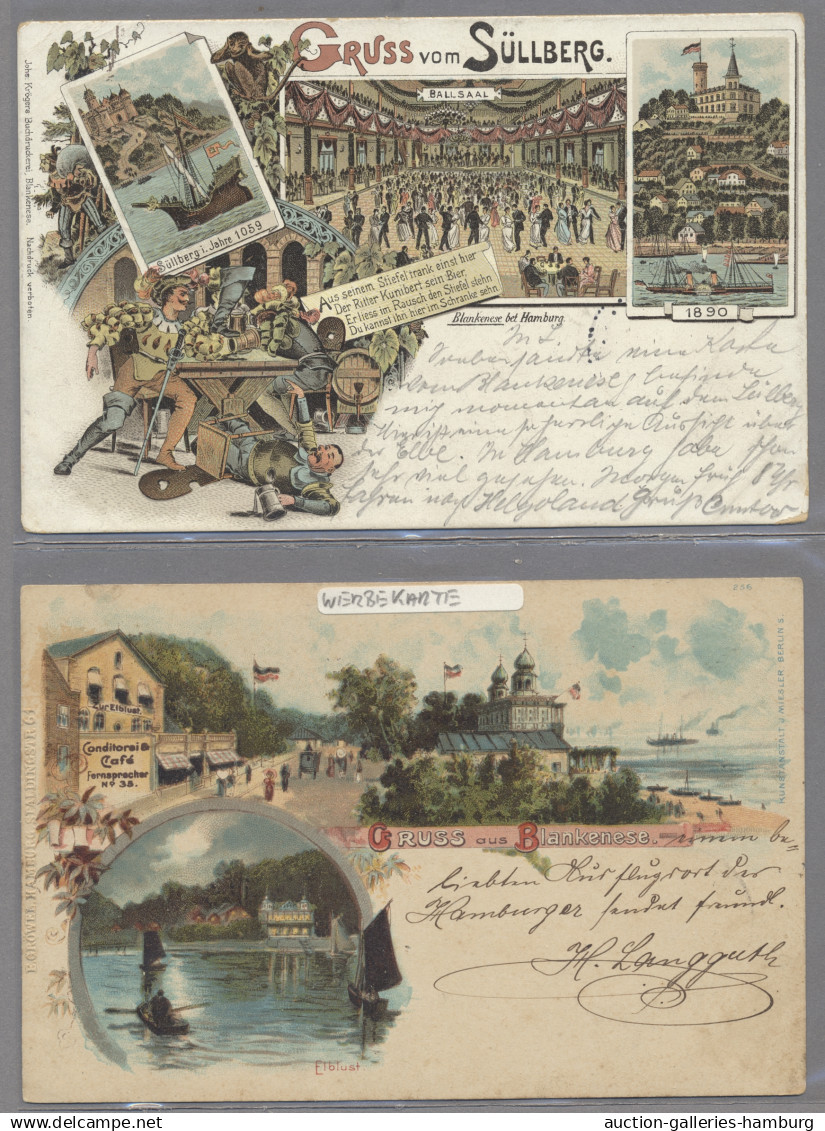 GRUSS VOM SÜLLBERG.
BALLSAAL
Süllberg i. Jahre 1059
Aus seinem Stiefel trank einst hier
Der Ritter Kunibert sein Bier,
Er liess im Rausch den Stiefel stehn
Du kannst ihn hier im Schranke sehn.
Blankenese bei Hamburg.
1890
Johs. Krögers Buchdruckerei, Blankenese. Nachdruck verboten.
eine Karte
vom Blankenese, befinde
mich momentan auf dem Süllberg
eine herrliche Aussicht über
die Elbe. In Hamburg habe schon
sehr viel gesehen. Morgen früh 8 Uhr
fahren nach Helgoland Gruß
WERBEKARTE
236
KUNSTANSTALT J. MIESLER BERLIN S.
Zur Elblust
Conditorei &
Café
Fernsprecher
No 38.
GRUSS aus Blankenese.
einem be=
liebten Ausflugsort der
Hamburger sendet freundl.
H. Langguth
Elblust
auction-galleries-hamburg.com